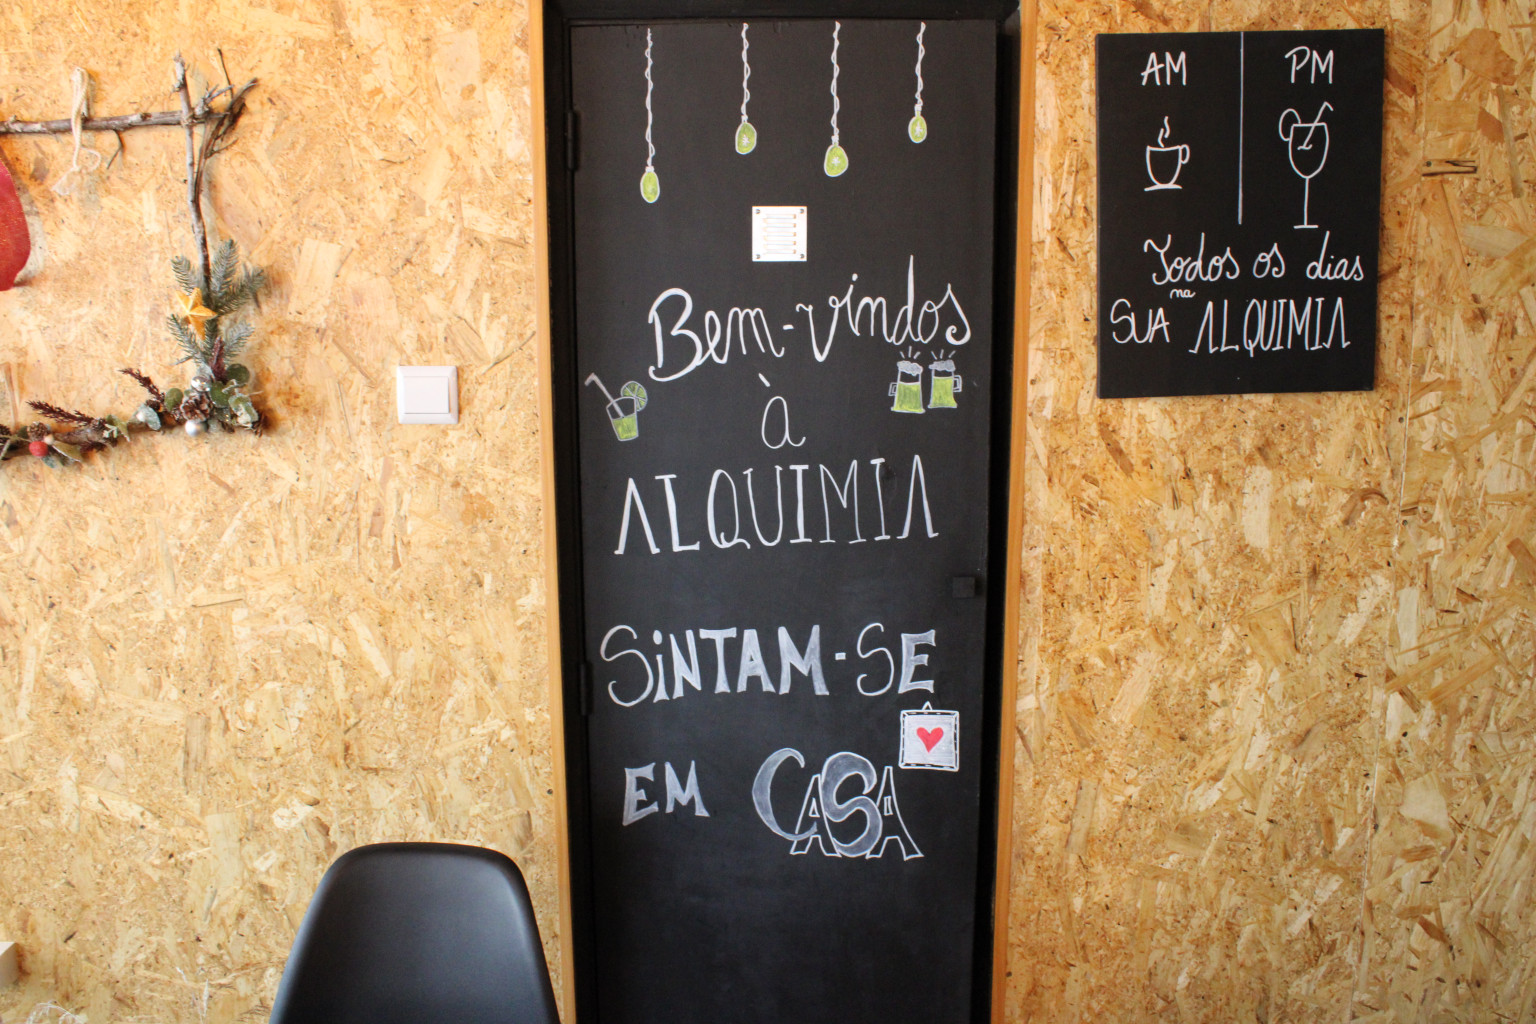 Bem-vindos
à
ALQUIMIA
SiNTAM-SE
EM CASA
AM PM
Todos os dias
na
SUA ALQUIMIA